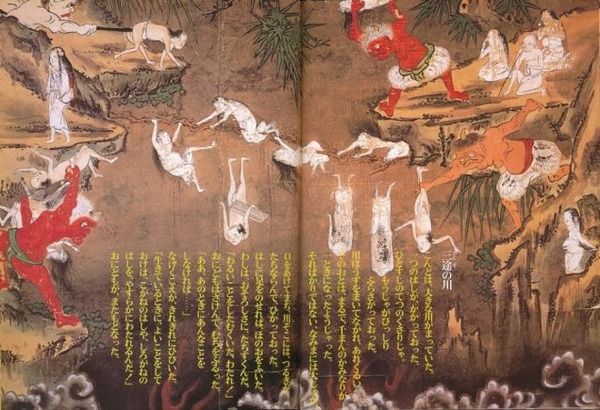 三途の川
こんどは、大きな川がまっていた。
一つのはしが、かかっておった。
ひとすじのてつのくさりじゃ。
もうじゃがびっしり
ぶらさがっておった。
川はうずをまいてながれ、あれくるい、
そのおとは、まるで、千まんのかみなりが
いっときになったようじゃった。
そればかりではない。なみまには
口をあけてまち、川ぞこには、つるぎが
たちならんで、ひかっておった。
はしに足をのせれば、ほのおをふいた。
わしは、おそろしさに、たちすくんだ。
「わるいことをしたむくいだ、わたれ！」
おにどもはさけんで、むちをふるった。
「ああ、あのときにあんなことを
しなければ……」
なげくこえが、きれぎれにひびいた。
「生きているときに、よいことをして
おけば、こがねのはしや、しろがねの
はしを、やすらかにわたれるんだ！」
おにどもが、またもどなった。